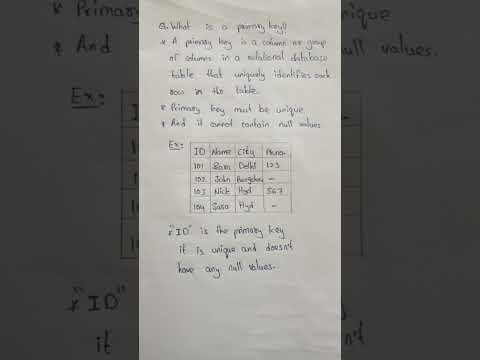 Q. What is a primary key?
* A primary key is a column or group
of columns in a relational database
table that uniquely identifies each
row in the table.
* Primary key must be unique
* And it cannot contain null values.
Ex:-
ID Name City Phno.
101 Ram Delhi 123
102 John Banglore —
103 Nick Hyd 567
104 Sara Hyd —
* "ID" is the primary key
it is unique and doesn't
have any null values.